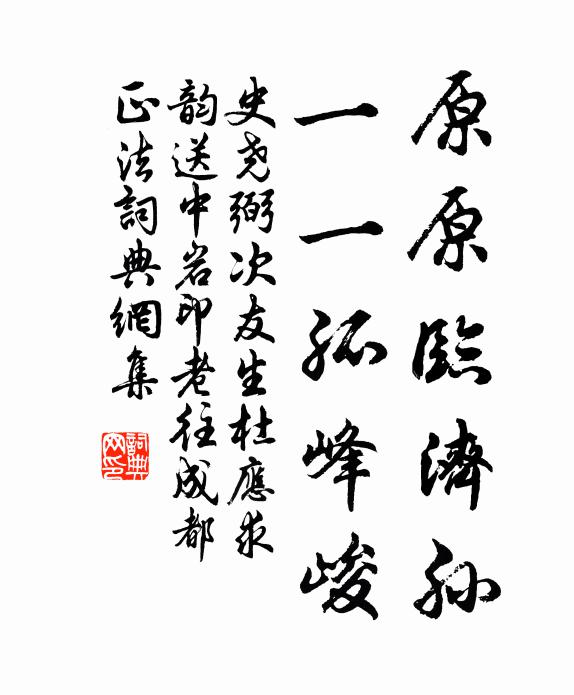 原原臨濟孙
一一孤峰峻
史尧弼次友生杜應求
韵送中岩印老往成都
正法詞典網集
詞典网印